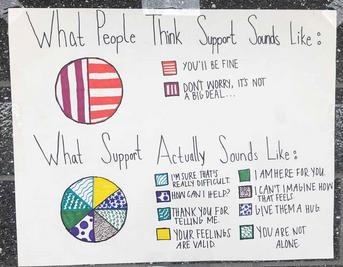 What People Think Support Sounds Like:
YOU'LL BE FINE
DON'T WORRY, IT'S NOT
A BIG DEAL...
What Support Actually Sounds Like:
I'M SURE THAT'S
REALLY DIFFICULT.
HOW CAN I HELP?
THANK YOU FOR
TELLING ME.
YOUR FEELINGS
ARE VALID.
I AM HERE FOR YOU.
I CAN'T IMAGINE HOW
THAT FEELS.
GIVE THEM A HUG
YOU ARE NOT
ALONE.